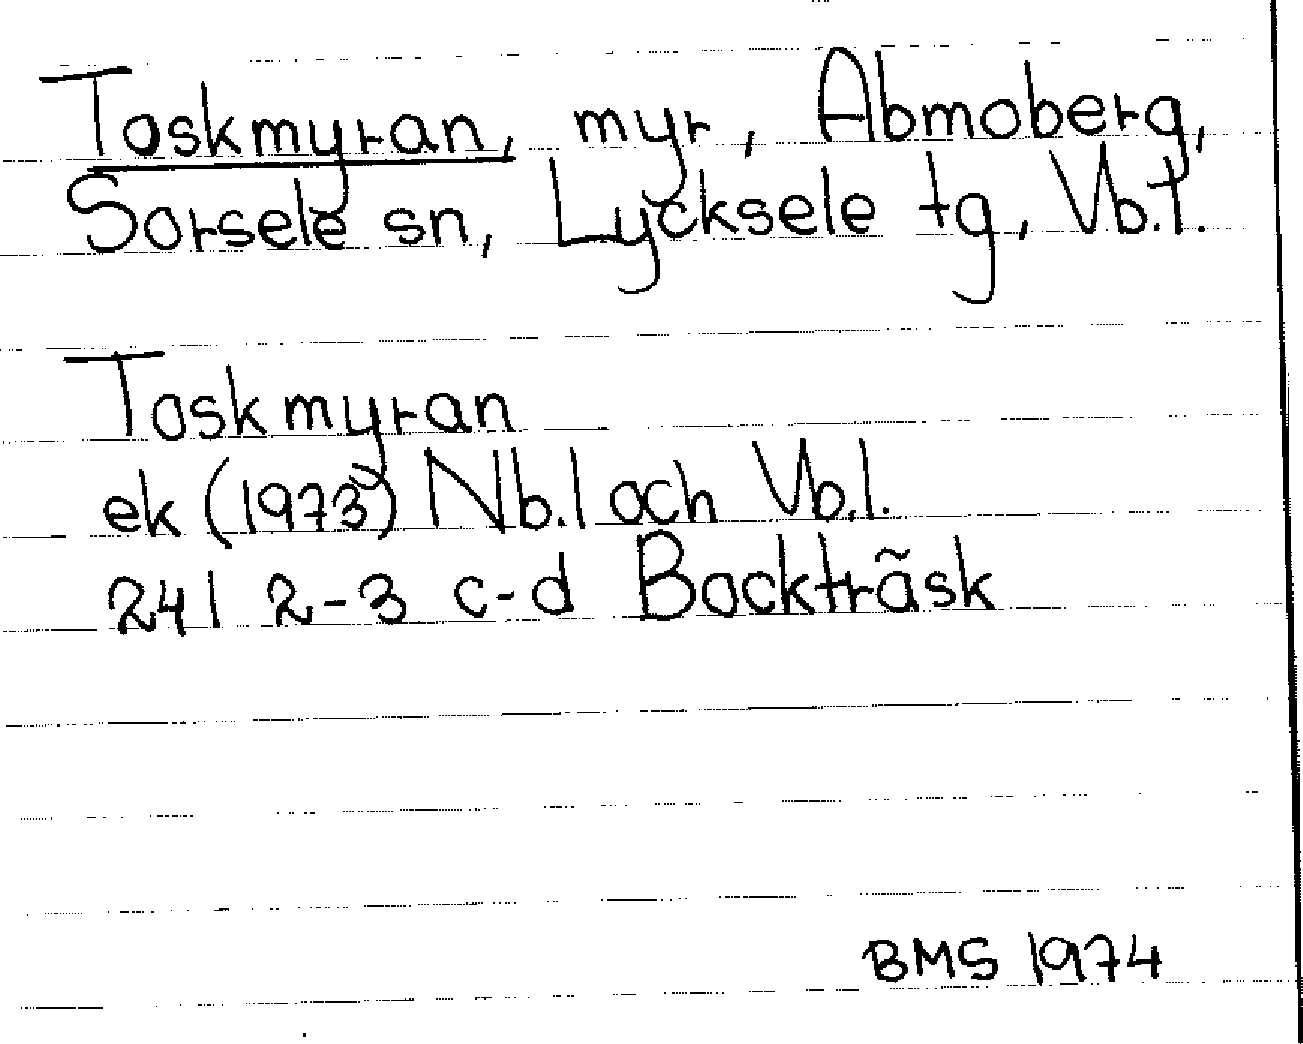 Toskmyran, myr, Abmoberg,
Sorsele sn, Lycksele tg, Vb.l.
Toskmyran
ek (1973) Nb.l och Vb.l.
24 I 2-3 c-d Backträsk
BMS 1974